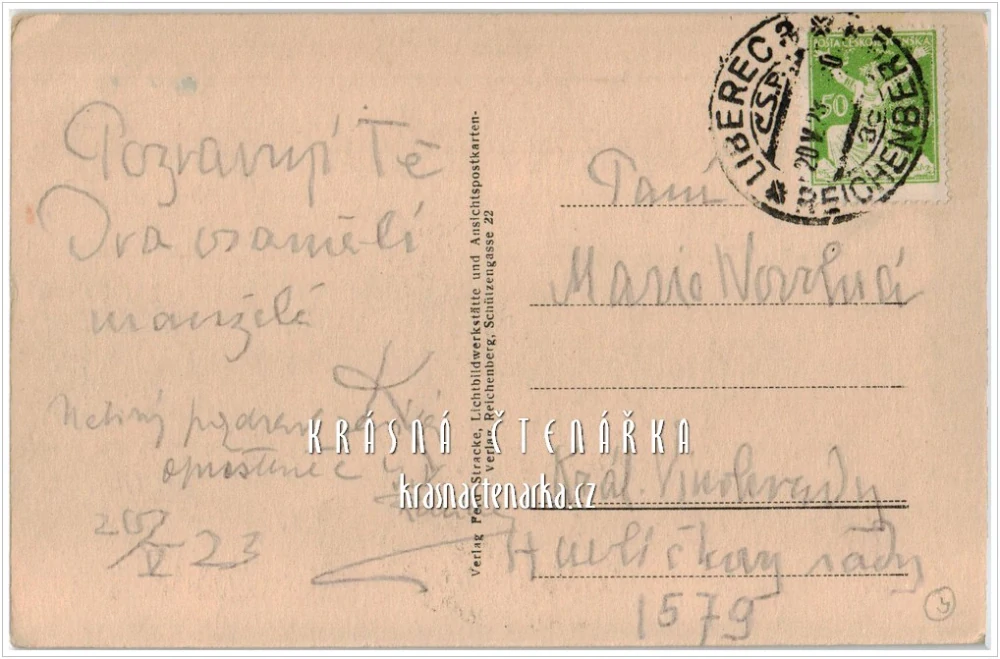 Pozdravují Tě
Dva osamělí
manželé
pozdrav
20/V 23
Verlag Ferd. Stracke, Lichtbildwerkstätte und Ansichtspostkarten-
Verlag Reichenberg, Schützengasse 22
LIBEREC
Č.S.P.
20 V 23
REICHENBERG
POŠTA ČESKOSLOVENSKÁ
50
Paní
Marie
Král. Vinohrady
Havlíčkovy sady
1579
KRÁSNÁ ČTENÁŘKA
krasnactenarka.cz